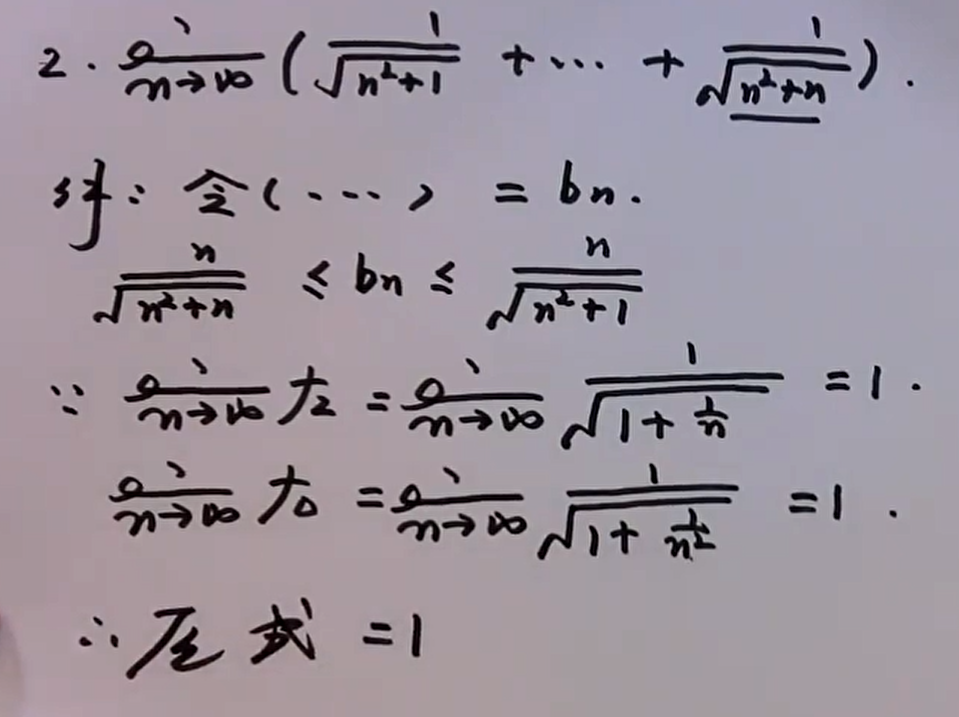 2. lim n→∞ (1/√(n²+1) + ⋯ + 1/√(n²+n)).
解: 令(⋯) = bn.
n/√(n²+n) ≤ bn ≤ n/√(n²+1)
∵ lim n→∞ 左 = lim n→∞ 1/√(1+1/n) = 1.
lim n→∞ 右 = lim n→∞ 1/√(1+1/n²) = 1.
∴ 原式 = 1